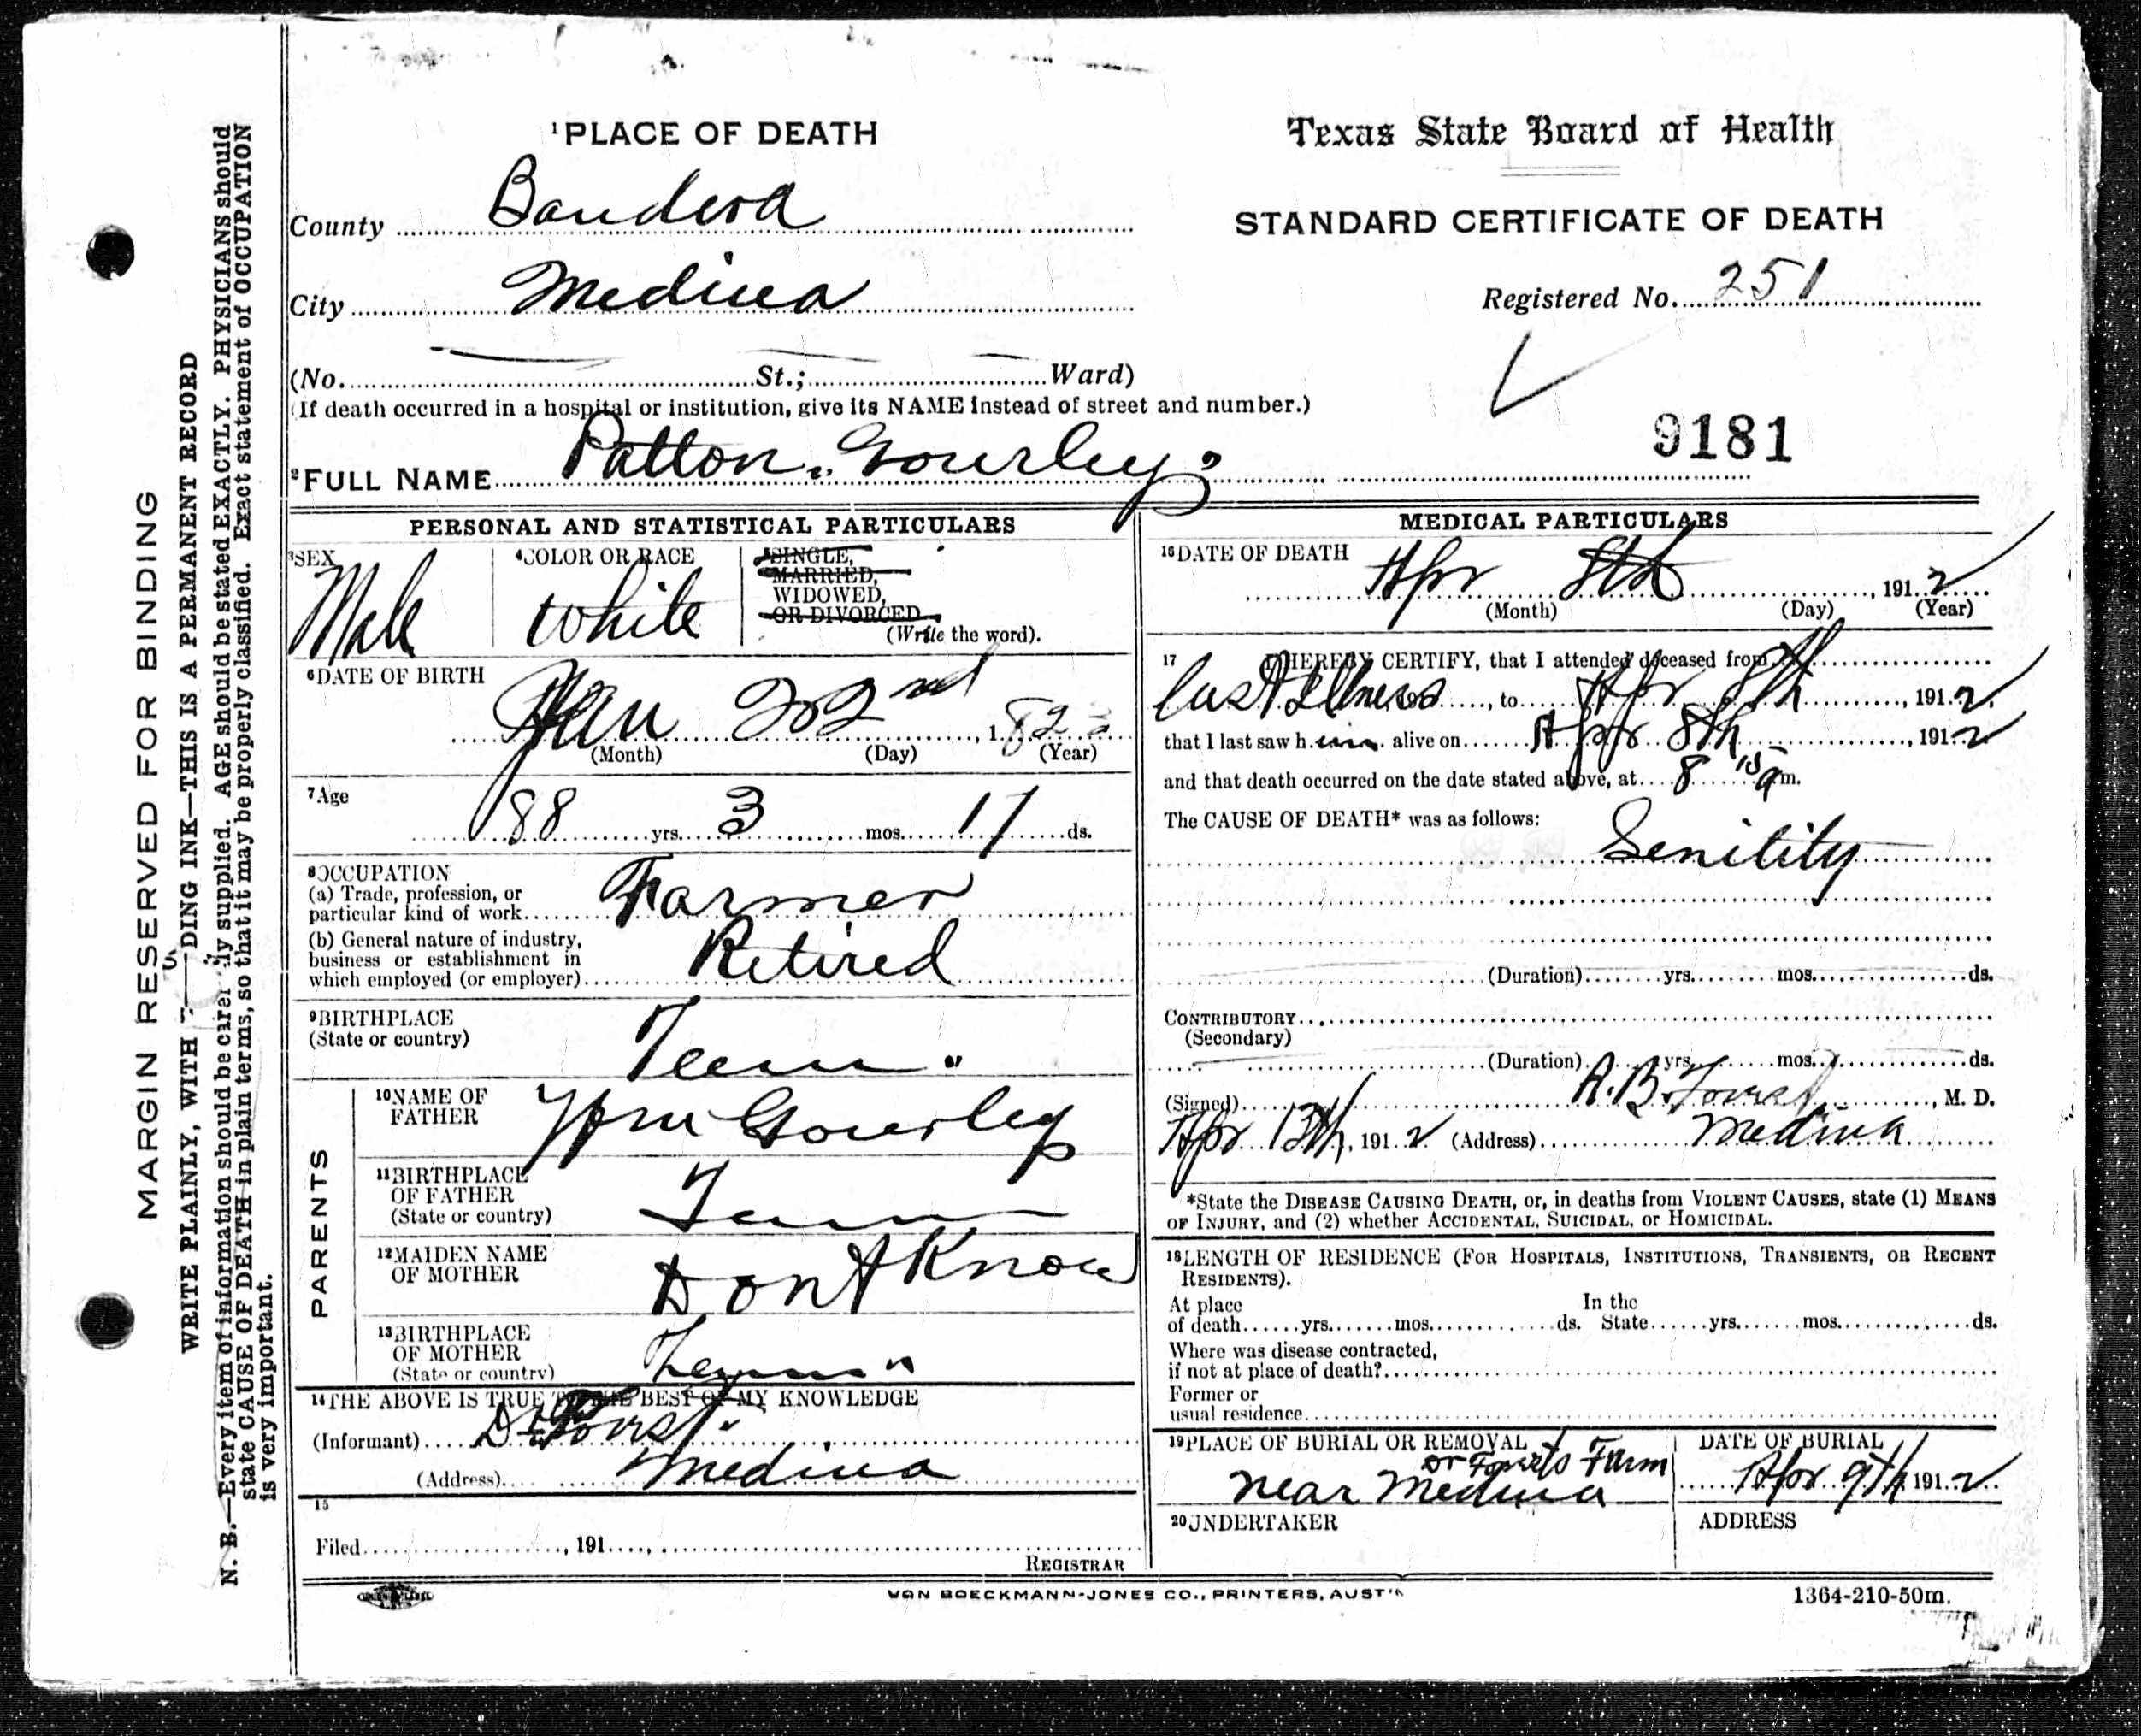 MARGIN RESERVED FOR BINDING
WRITE PLAINLY, WITH DING INK—THIS IS A PERMANENT RECORD
N. B.—Every item of information should be carefully supplied. AGE should be stated EXACTLY. PHYSICIANS should
state CAUSE OF DEATH in plain terms, so that it may be properly classified. Exact statement of OCCUPATION
is very important.
1 PLACE OF DEATH
County Bandera
City Medina
(No. St.; Ward)
(If death occurred in a hospital or institution, give its NAME instead of street and number.)
Texas State Board of Health
STANDARD CERTIFICATE OF DEATH
Registered No. 251
9181
2 FULL NAME Patton Gourley
PERSONAL AND STATISTICAL PARTICULARS
3 SEX
Male
4 COLOR OR RACE
White
5 SINGLE,
MARRIED,
WIDOWED,
OR DIVORCED
(Write the word).
6 DATE OF BIRTH
Jan 22nd, 1823
(Month) (Day) (Year)
7 Age
88 yrs. 3 mos. 17 ds.
8 OCCUPATION
(a) Trade, profession, or
particular kind of work Farmer
(b) General nature of industry,
business or establishment in
which employed (or employer) Retired
9 BIRTHPLACE
(State or country) Tenn
PARENTS
10 NAME OF
FATHER Wm Gourley
11 BIRTHPLACE
OF FATHER
(State or country) Tenn
12 MAIDEN NAME
OF MOTHER Dont Know
13 BIRTHPLACE
OF MOTHER
(State or country) Tenn "
14 THE ABOVE IS TRUE TO THE BEST OF MY KNOWLEDGE
(Informant) Dr
(Address) Medina
15
Filed , 191 ,
REGISTRAR
MEDICAL PARTICULARS
16 DATE OF DEATH
Apr 8th, 1912
(Month) (Day) (Year)
17 I HEREBY CERTIFY, that I attended deceased from
last Illness, to Apr 8th, 1912,
that I last saw him alive on Apr 8th, 1912
and that death occurred on the date stated above, at 8 15 a m.
The CAUSE OF DEATH* was as follows:
Senility
(Duration) yrs. mos. ds.
CONTRIBUTORY
(Secondary)
(Duration) yrs. mos. ds.
(Signed) A. B. , M. D.
Apr 13th, 1912 (Address) Medina
*State the DISEASE CAUSING DEATH, or, in deaths from VIOLENT CAUSES, state (1) MEANS
OF INJURY, and (2) whether ACCIDENTAL, SUICIDAL, or HOMICIDAL.
18 LENGTH OF RESIDENCE (FOR HOSPITALS, INSTITUTIONS, TRANSIENTS, OR RECENT
RESIDENTS).
At place
of death yrs. mos. ds.
In the
State yrs. mos. ds.
Where was disease contracted,
if not at place of death?
Former or
usual residence
19 PLACE OF BURIAL OR REMOVAL
Dr Farm
near Medina
DATE OF BURIAL
Apr 9th 1912
20 UNDERTAKER
ADDRESS
VON BOECKMANN-JONES CO., PRINTERS, AUSTIN
1364-210-50m.